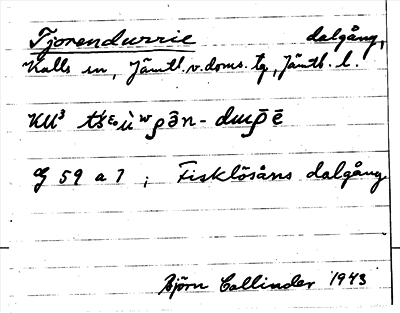 Tjorendurrie dalgång,
Kalls sn, Jämtl. v. doms. tg, Jämtl. l.
KU³
G 59 a 7 ; Fisklösåns dalgång
Björn Collinder 1943